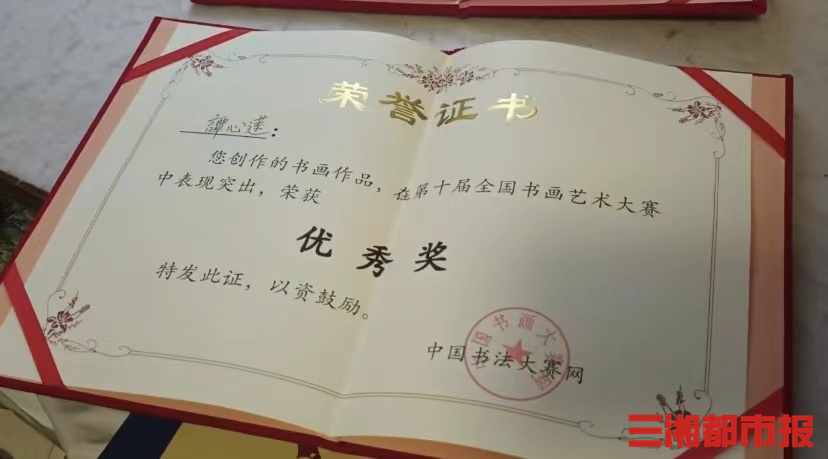 荣誉证书
譚心莲：
您创作的书画作品，在第十届全国书画艺术大赛
中表现突出，荣获
优秀奖
特发此证，以资鼓励。
中国书法大赛网
中国书画大赛网
三湘都市报